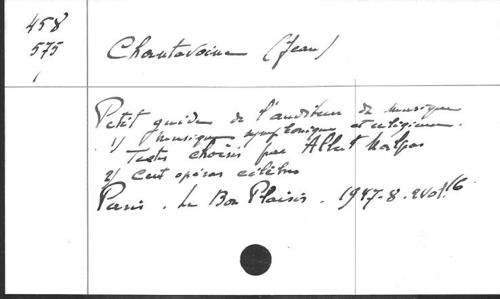 458
575
1
Chantavoine (Jean)
Petit guide de l'auditeur de musique
1) Musique symphonique et religieuse.
Textes choisis par Albert
2) Cent opéras célèbres
Paris. Le Bon Plaisir. 1947-8. 2 vol. 16